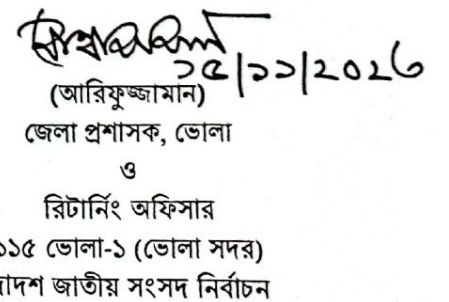 ১৫|১১|২০২৩
(আরিফুজ্জামান)
জেলা প্রশাসক, ভোলা
ও
রিটার্নিং অফিসার
১১৫ ভোলা-১ (ভোলা সদর)
াদশ জাতীয় সংসদ নির্বাচন